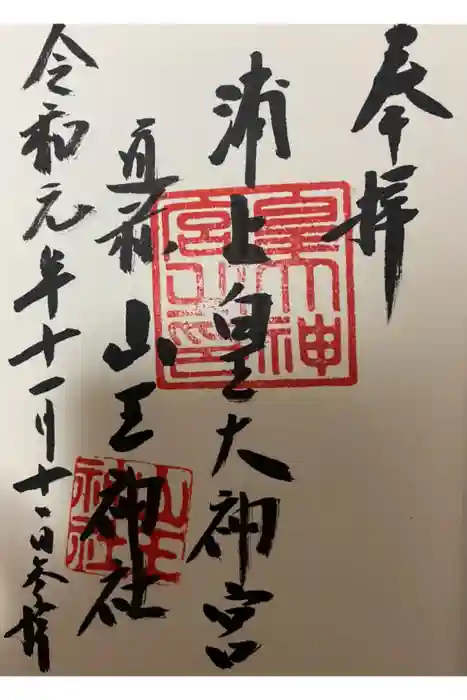 奉拝
浦上皇大神宮
直称
山王神社
令和元年十一月十一日参拝
皇大神宮之印
山王神社